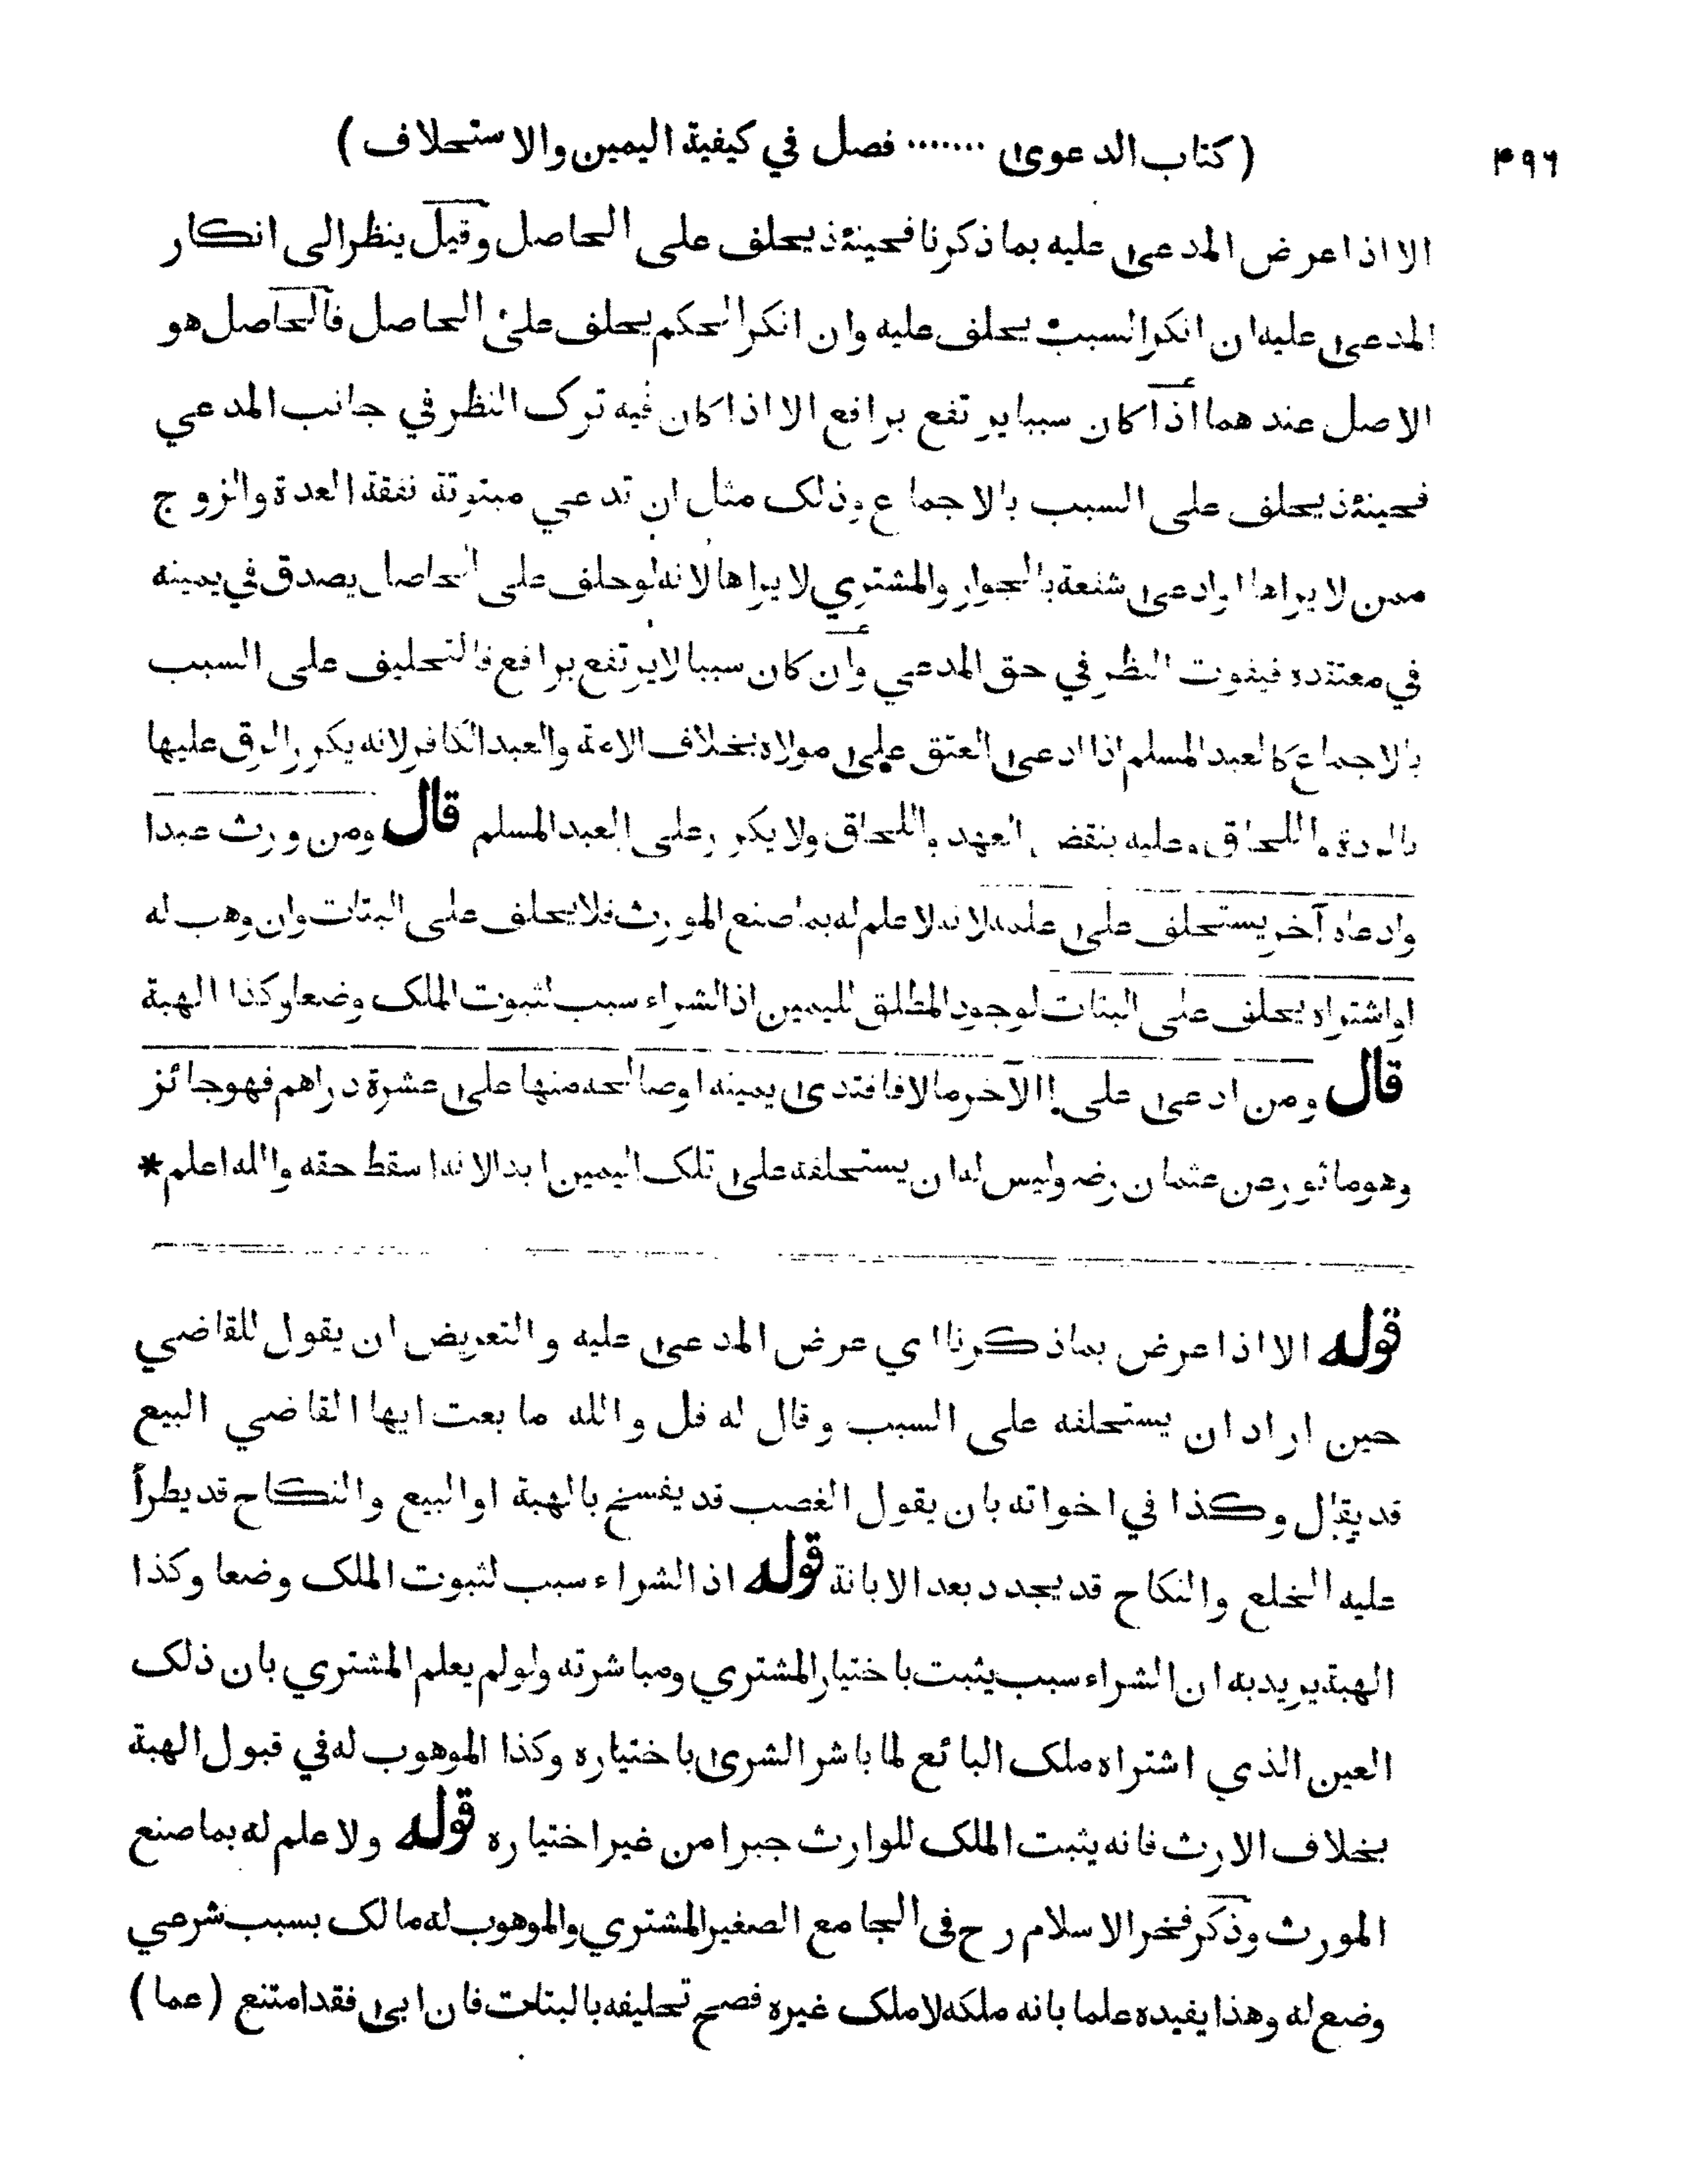 ۴۹۶ ( كتاب الدعوىٰ ....... فصل في كيفية اليمين والاستحلاف )
الا اذا عرض المدعىٰ عليه بما ذكرنا فحينئذ يحلف على الحاصل وقيل ينظر الى انكار
المدعىٰ عليه ان انكر السبب يحلف عليه وان انكر الحكم يحلف علىٰ الحاصل فالحاصل هو
الاصل عندهما اذا كان سببا يرتفع برافع الا اذا كان فيه ترك النظر في جانب المدعي
فحينئذ يحلف على السبب بالاجماع وذلك مثل ان تدعي مبتوتة نفقة العدة والزوج
ممن لا يراها او ادعىٰ شفعة بالجوار والمشتري لا يراها لانه لو حلف على الحاصل يصدق في يمينه
في معتقده فيفوت النظر في حق المدعي وان كان سببا لا يرتفع برافع فالتحليف على السبب
بالاجماع كالعبد المسلم اذا ادعىٰ العتق علىٰ مولاه بخلاف الامة والعبد الكافر لانه يكرر الرق عليها
بالردة واللحاق وعليه بنقض العهد واللحاق ولا يكرر على العبد المسلم قال ومن ورث عبدا
وادعاه آخر يستحلف علىٰ علمه لانه لا علم له بما صنع المورث فلا يحلف على البتات وان وهب له
او اشتراه يحلف على البتات لوجود المطلق لليمين اذ الشراء سبب لثبوت الملك وضعا وكذا الهبة
قال ومن ادعىٰ على الآخر مالا فافتدىٰ يمينه او صالحه منها علىٰ عشرة دراهم فهو جائز
وهو ماثور عن عثمان رضه وليس له ان يستحلفه علىٰ تلك اليمين ابدا لانه اسقط حقه والله اعلم *
قوله الا اذا عرض بما ذكرنا اي عرض المدعىٰ عليه والتعريض ان يقول للقاضي
حين اراد ان يستحلفه على السبب وقال له قل والله ما بعت ايها القاضي البيع
قد يقال وكذا في اخواته بان يقول الغصب قد يفسخ بالهبة او البيع والنكاح قد يطرأ
عليه الخلع والنكاح قد يجدد بعد الابانة قوله اذ الشراء سبب لثبوت الملك وضعا وكذا
الهبة يريد به ان الشراء سبب يثبت باختيار المشتري ومباشرته ولو لم يعلم المشتري بان ذلك
العين الذي اشتراه ملك البائع لما باشر الشرىٰ باختياره وكذا الموهوب له في قبول الهبة
بخلاف الارث فانه يثبت الملك للوارث جبرا من غير اختياره قوله ولا علم له بما صنع
المورث وذكر فخر الاسلام رح فى الجامع الصغير المشتري والموهوب له مالك بسبب شرعي
وضع له وهذا يفيده علما بانه ملكه لا ملك غيره فصح تحليفه بالبتات فان ابىٰ فقد امتنع ( عما )